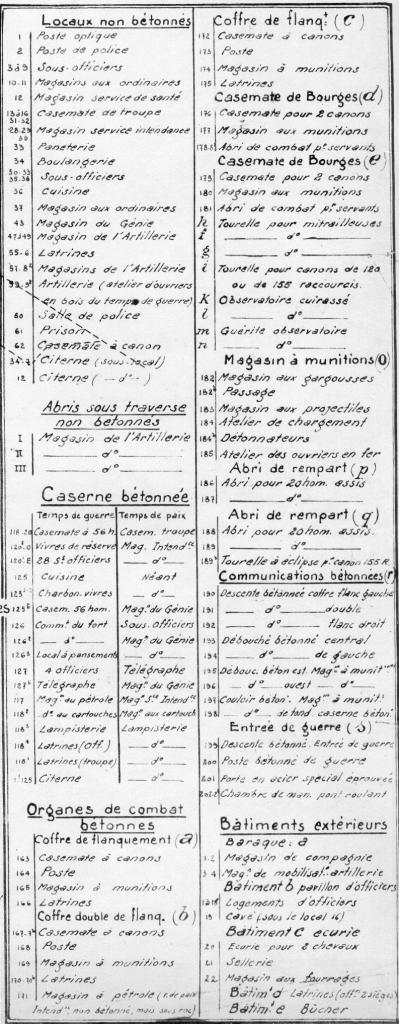 Locaux non bétonnés
1 Poste optique
2 Poste de police
3à9 Sous-officiers
10.11 Magasins aux ordinaires
12 Magasin service de santé
13à16 31-32 Casemate de troupe
28.29 30 Magasin service intendance
33 Paneterie
34 Boulangerie
35.36 Sous-officiers
36 Cuisine
37 Magasin aux ordinaires
43 Magasin du Génie
47.49 Magasin de l'Artillerie
55-6 Latrines
57.8 Magasins de l'Artillerie
Artillerie (atelier d'ouvriers
en bois du temps de guerre)
60 Salle de police
61 Prison
62 Casemate à canon
Citerne (sous roçal)
12 Citerne ( — d° - )
Abris sous traverse
non bétonnés
I Magasin de l'Artillerie
II — d° —
III — d° —
Caserne bétonnée
Temps de guerre Temps de paix
118.20 Casemate à 56 h. Casem. troupe
120.0 Vivres de réserve Mag. Intendce
120.E 28 Sts officiers — d° —
125 Cuisine Néant
125 Charbon. vivres — d° —
125 Casem. 56 hom. Mag. du Génie
126 Commt du fort Sous-officiers
126 — d° — Mag. du Génie
126 Local à pansements — d° —
127 4 officiers Télégraphe
127 Télégraphe Mag. du Génie
117 Mag. au pétrole Mag. Sce Intendce
118 d° au cartouches Mag. aux cartouch
118 Lampisterie Lampisterie
118 Latrines (off.) — d° —
118 Latrines (troupe) — d° —
125 Citerne — d° —
Organes de combat
bétonnés
Coffre de flanquement (a)
163 Casemate à canons
164 Poste
165 Magasin à munitions
166 Latrines
Coffre double de flanq. (b)
167.7 Casemate à canons
168 Poste
169 Magasin à munitions
170.70 Latrines
171 Magasin à pétrole
Intend. non bétonné, mais sous roc)
Coffre de flanqt (c)
172 Casemate à canons
173 Poste
174 Magasin à munitions
175 Latrines
Casemate de Bourges (d)
176 Casemate pour 2 canons
177 Magasin aux munitions
178.8 Abri de combat pr servants
Casemate de Bourges (e)
179 Casemate pour 2 canons
180 Magasin aux munitions
181 Abri de combat pr servants
h Tourelle pour mitrailleuses
f — d° —
g — d° —
i Tourelle pour canons de 120
ou de 155 raccourcis.
k Observatoire cuirassé
l — d° —
m Guérite observatoire
n — d° —
Magasin à munitions (o)
182 Magasin aux gargousses
182 Passage
183 Magasin aux projectiles
184 Atelier de chargement
184 Détonnateurs
185 Atelier des ouvriers en fer
Abri de rempart (p)
186 Abri pour 20 hom. assis
187 — d° —
Abri de rempart (q)
188 Abri pour 20 hom. assis
189 — d° —
189 Tourelle à éclipse pr canon 155 R.
Communications bétonnées (r)
190 Descente bétonnée coffre flanc gauche
191 — d° — double
192 — d° — flanc droit
193 Débouché bétonné central
194 — d° — de gauche
195 Débouc. béton est. Mag. à munit.
196 — d° — ouest — d° —
197 Couloir béton. Mag. à munit.
198 — d° — de fond caserne béton.
Entrée de guerre (s)
199 Descente bétonné. Entrée de guerre
200 Poste bétonné de guerre
201 Porte en acier spécial éprouvée
202.2 Chambre de man. pont roulant
Bâtiments extérieurs
Baraque: a
1.2 Magasin de compagnie
3.4 Mag. de mobilisat. artillerie
Bâtiment b pavillon d'officiers
Logements d'officiers
19 Cave (sous le local 16)
Bâtiment c ecurie
20 Ecurie pour 2 chevaux
21 Sellerie
22 Magasin aux fourrages
Bâtim. d Latrines (off. 2 sièges)
Bâtim. e Bûcher